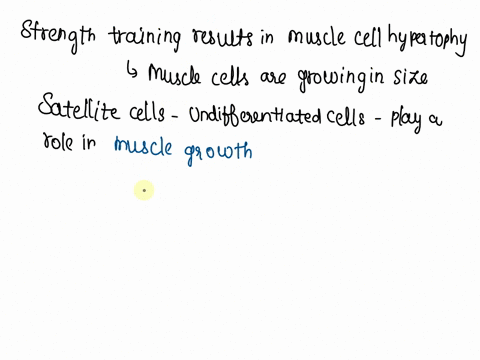 Strength training results in muscle cell hypertophy
↳ Muscle cells are growing in size
Satellite cells - Undifferentiated cells - play a
role in muscle growth